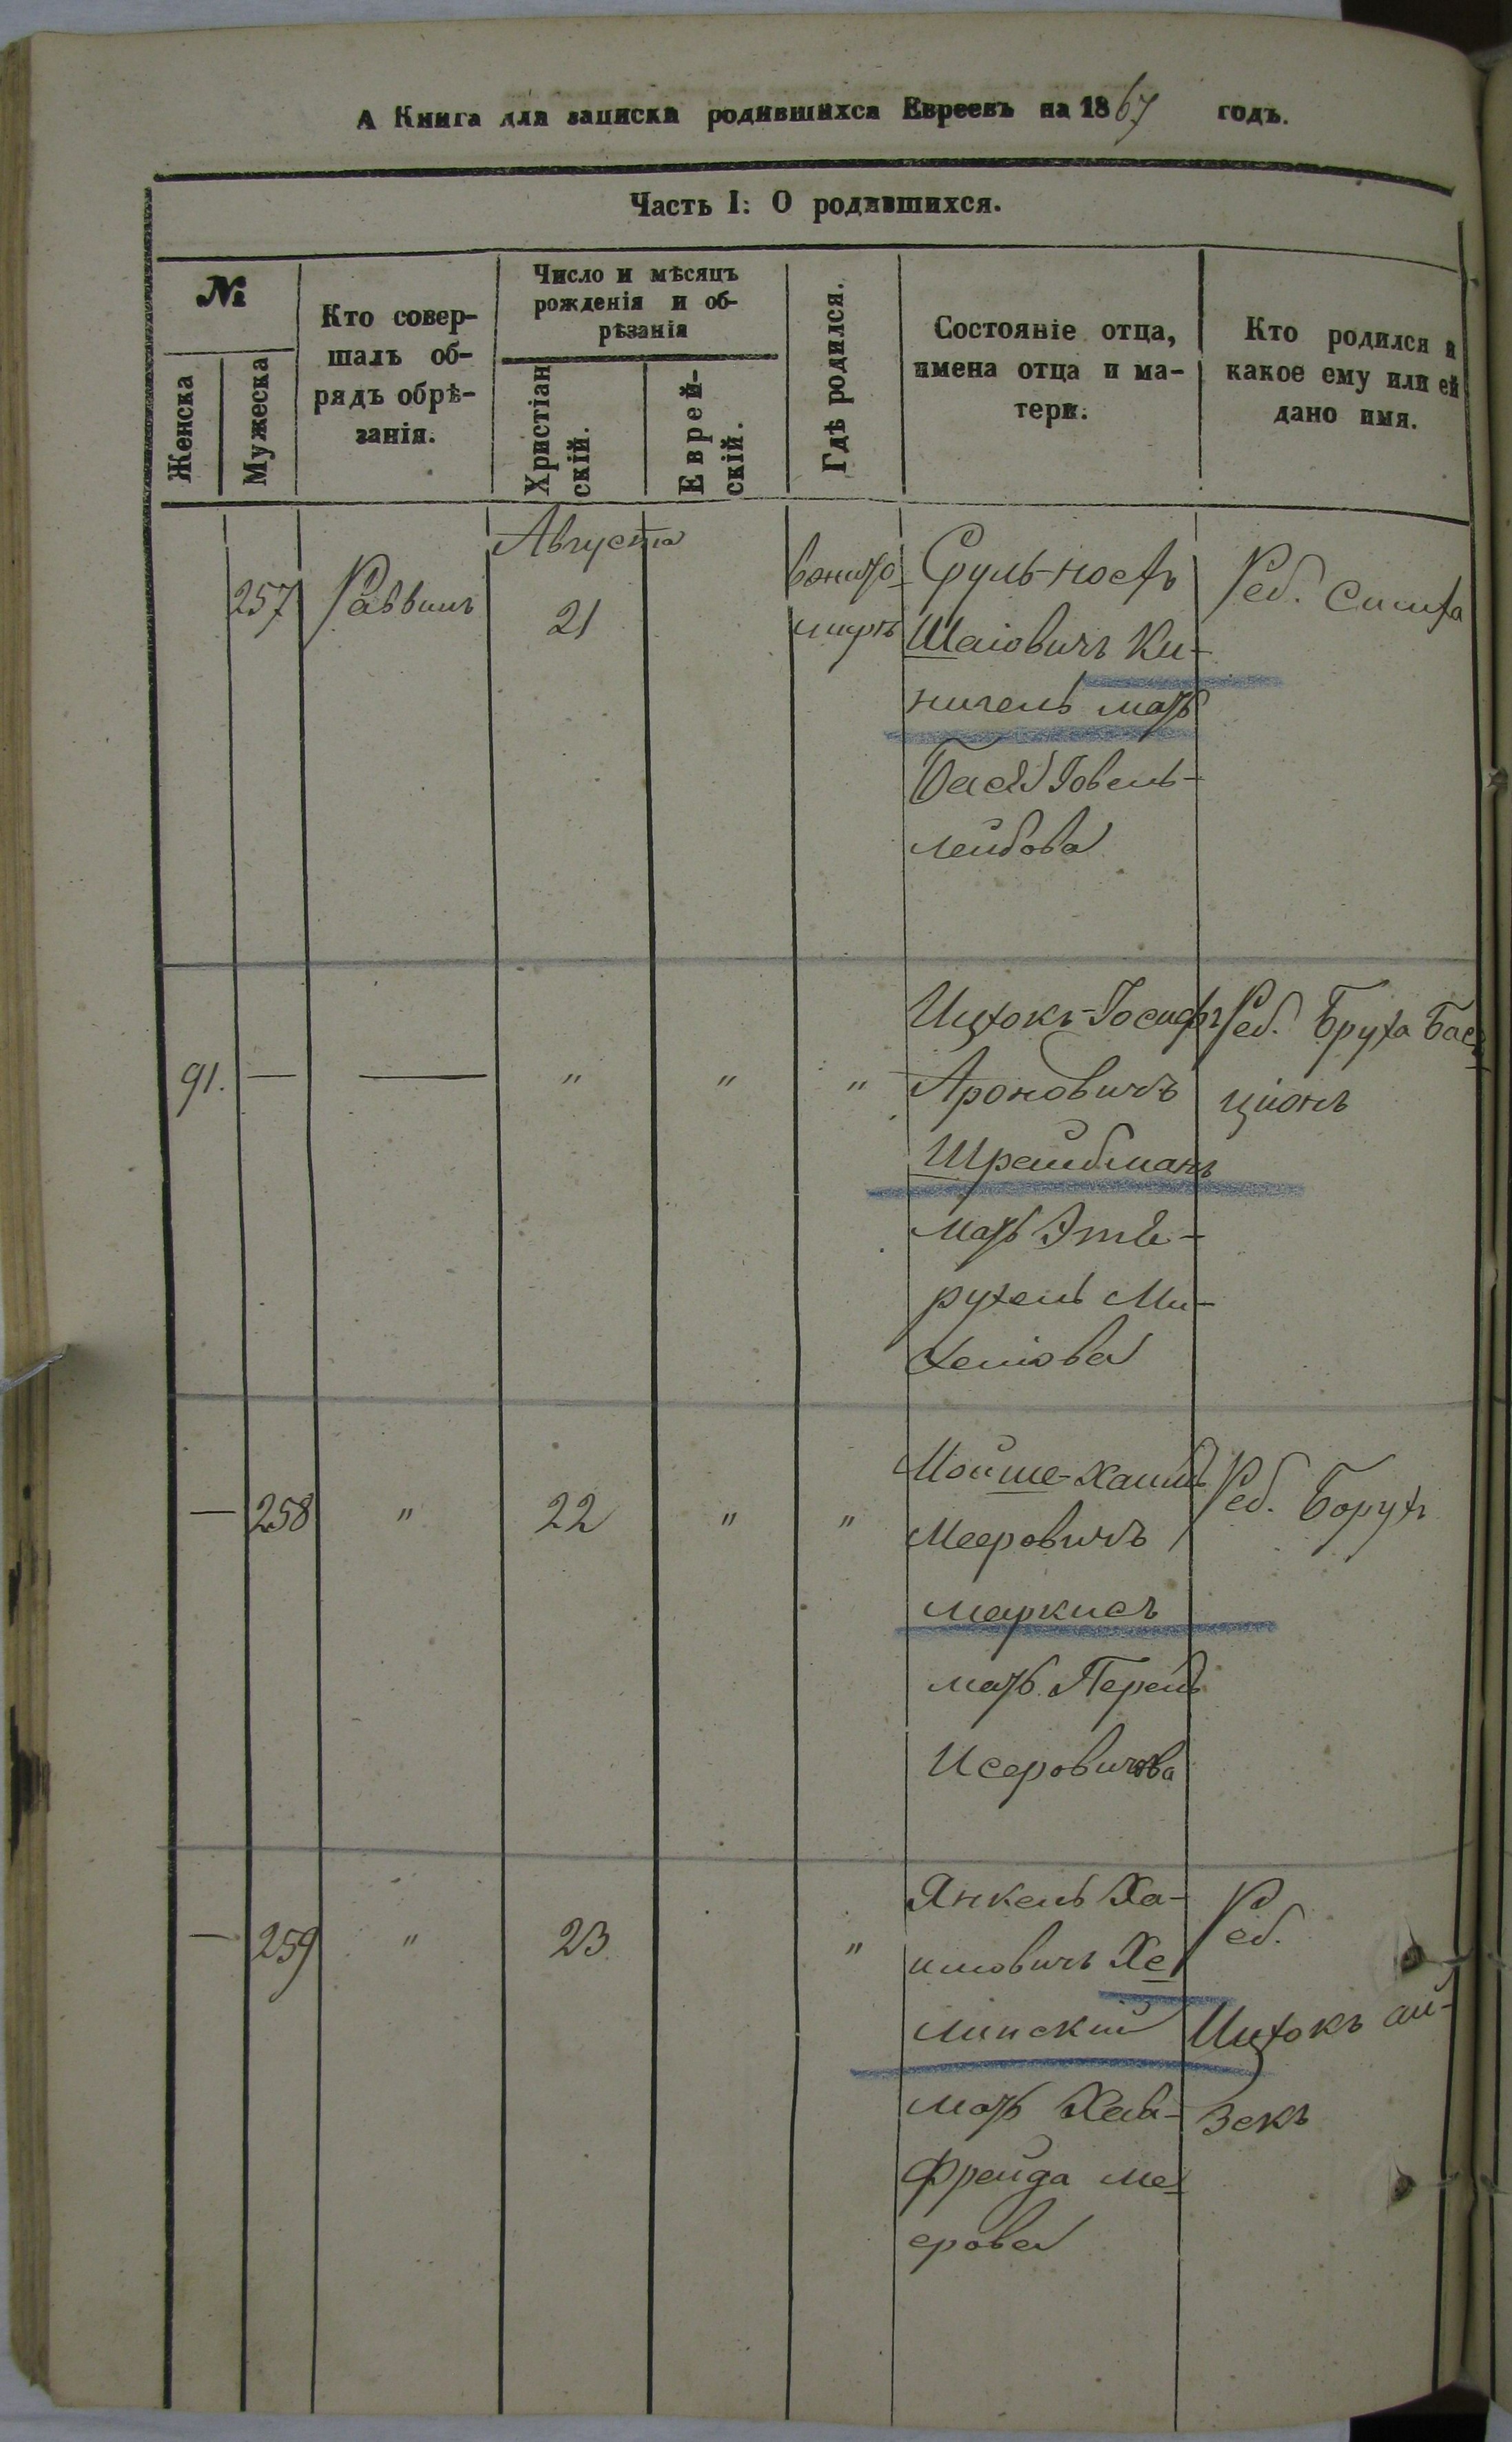 А Книга для записки родившихся Евреевъ на 1867 годъ.
Часть I: О родившихся.
№
Женска
Мужеска
Кто совер-
шалъ об-
рядъ обрѣ-
занія.
Число и мѣсяцъ
рожденія и об-
рѣзанія
Христіан
скій.
Еврей-
скій.
Гдѣ родился.
Состояніе отца,
имена отца и ма-
тери.
Кто родился и
какое ему или ей
дано имя.
Августа
257
Раввинъ
21
вжито-
мирѣ
Сруль-Носъ
Шаіовичъ Ки-
нигель мать
Бася Говель-
лейбова
Реб. Симха
91. — — " " "
Ицхокъ-Іосифъ
Ароновичъ
Шрайбманъ
мать Этя-
рухель Ми-
хелова
Реб. Бруха Бас-
ціонъ
— 258 " 22 " "
Мойше-Хаимъ
Мееровичъ
Маркисъ
мать Перель
Исеровичова
Реб. Борухъ
— 259 " 23 "
Янкель Ха-
имовичъ Хе
линский
мать Хая-
Фрейда Ме-
ерова
Реб.
Ицхокъ ай-
зекъ